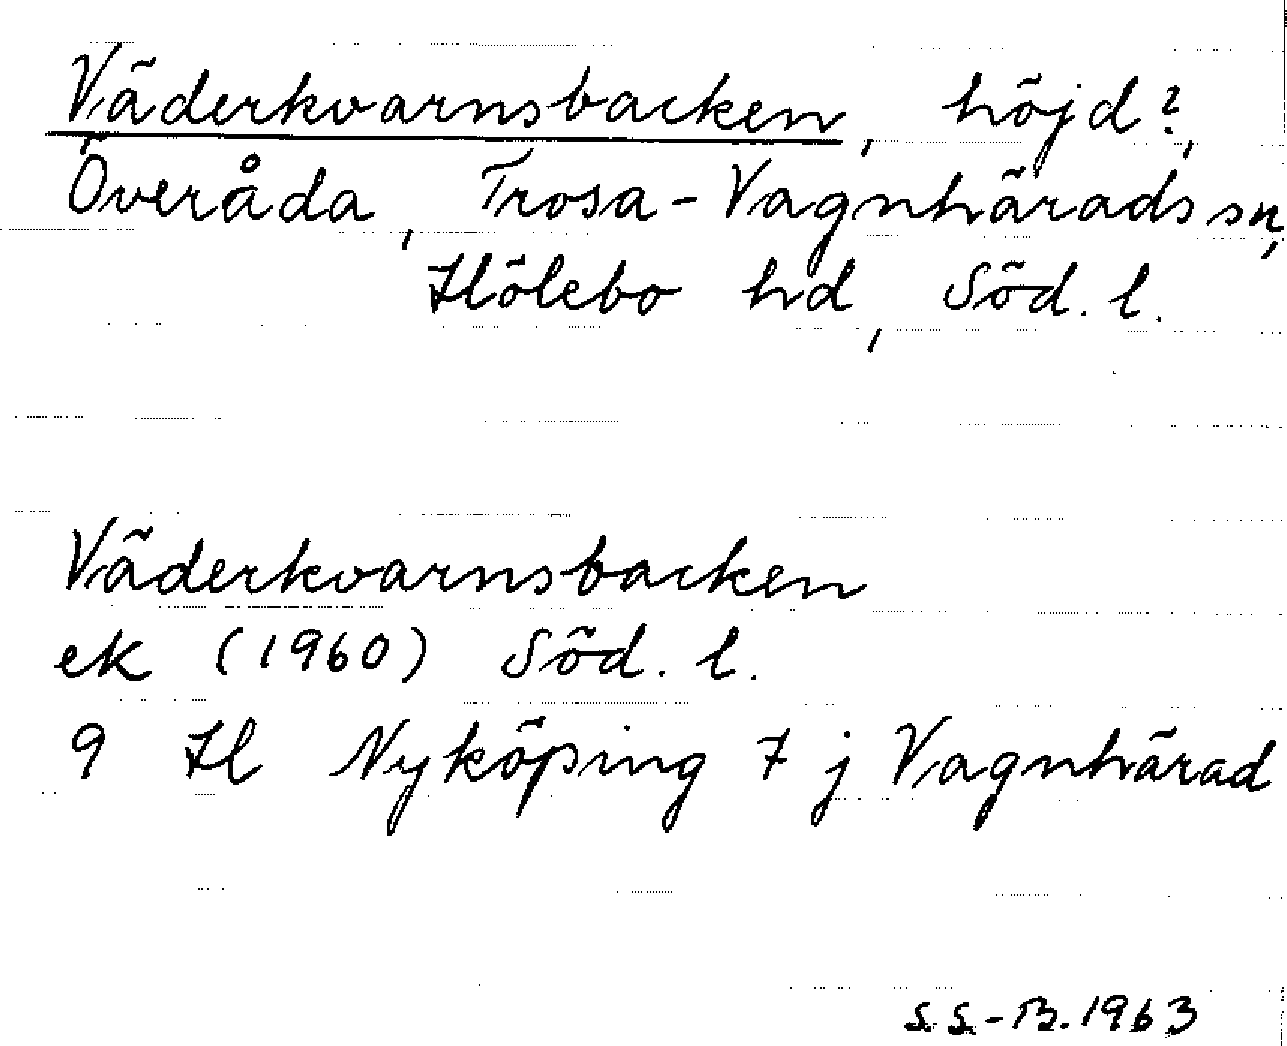 Väderkvarnsbacken, höjd?,
Överåda, Trosa-Vagnhärads sn,
Hölebo hd, Söd. l.
Väderkvarnsbacken
ek (1960) Söd. l.
9 Hl Nyköping 7 j Vagnhärad
S.S.-B. 1963